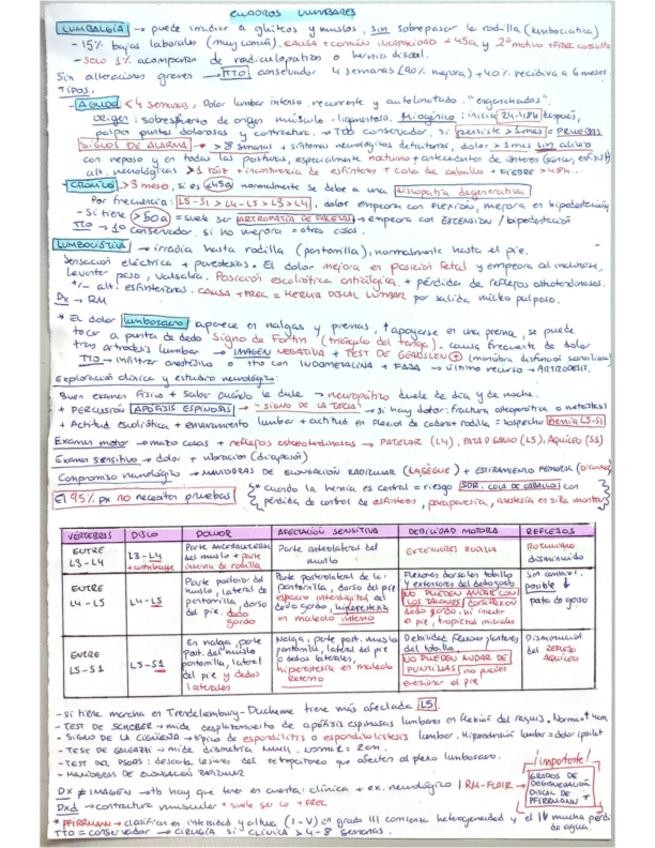 CUADROS LUMBARES
LUMBALGIA → puede irradiar a glúteos y muslos, sin sobrepasar la rodilla (lumbociática)
- 15% bajas laborales (muy común). CAUSA + COMÚN INCAPACIDAD <45a y 2º motivo + FREC consulta
- SOLO 1% acompañan de radiculopatías o hernia discal.
Sin alteraciones graves → TTO conservador 4 semanas (90% mejora) + 40% recidiva a 6 meses
TIPOS.
- AGUDA: < 4 semanas. Dolor lumbar intenso, recurrente y autolimitado. "enganchados".
origen: sobresfuerzo de origen músculo-ligamentoso. Miogénico: inicia 24-48h después,
palpar puntos dolorosos y contractura. → TTO conservador. si persiste > 1 mes = PRUEBAS
SIGNOS DE ALARMA → > 8 semanas + síntomas neurológicos deficitarios, dolor > 1 mes sin alivio
con reposo y en todas las posturas, especialmente nocturno + antecedentes de
alt. neurológicas > 1 raíz + incontinencia de esfínteres + cola de caballo + FIEBRE > 48h...
- CRÓNICO: > 3 meso, si es <45a normalmente se debe a una discopatía degenerativa
Por frecuencia: L5-S1 > L4-L5 > L3-L4, dolor empeora con FLEXIÓN, mejora en bipedestación
- Si tiene >50a = suele ser ARTROPATÍA DE FACETAS → empeora con EXTENSIÓN / bipedestación
TTO → 1º conservador, si no mejora = otras cosas.
LUMBOCIÁTICA → irradia hasta rodilla (pantorrilla), normalmente hasta el pie.
Sensación eléctrica + parestesias. El dolor mejora en posición fetal y empeora al inclinarse,
levantar peso, valsalva. Posición escoliótica antiálgica. + pérdida de reflejos osteotendinosos.
+/- alt. esfinterianas. CAUSA + FREC = HERNIA DISCAL LUMBAR por salida núcleo pulposo.
Dx → RM
* El dolor lumbosacro aparece en nalgas y piernas, ↑ apoyarse en una pierna, se puede
tocar a punta de dedo Signo de Fortin (triángulo del targa). causa frecuente de dolor
tras artrodesis lumbar → IMAGEN NEGATIVA + TEST DE GEANSLEN (+) (maniobra disfunción sacroilíaca)
TTO → infiltrar anestésico o tto con INDOMETACINA + FAJA → último recurso → ARTRODESIS.
Exploración clínica y estudio neurológico:
Buen examen físico + saber cuándo le duele → neuropático duele de día y de noche.
+ PERCUSIÓN APÓFISIS ESPINOSAS → "SIGNO DE LA TECLA" → si hay dolor: fractura osteoporótica o metástasis
+ Actitud escoliótica + enervamiento lumbar + actitud en flexión de cadera + rodilla = sospecho hernia L5-S1
Examen motor → mato cosas + reflejos osteotendinosos → PATELAR (L4), PATA D GANSO (L5), Aquíleo (S1)
Examen sensitivo → dolor + vibración (diapasón)
Compromiso neurológico → MANIOBRAS DE ELONGACIÓN RADICULAR (LASÈGUE) + ESTIRAMIENTO FEMORAL
El 95% px no necesitan pruebas
* cuando la hernia es central = riesgo SDR. COLA DE CABALLO con
pérdida de control de esfínteres, paraparesia, anestesia en silla montar
VÉRTEBRAS DISCO DOLOR AFECTACIÓN SENSITIVA DEBILIDAD MOTORA REFLEJOS
ENTRE L3-L4 | L3-L4 + contribuye | Parte anterolateral del muslo + parte interna de rodilla | Parte anterolateral del muslo | EXTENSORES RODILLA | Rotuliano disminuido
ENTRE L4-L5 | L4-L5 | Parte posterior del muslo, lateral de pantorrilla, dorso del pie. dedo gordo | Parte posterolateral de la pantorrilla, dorso del pie espacio interdigital del dedo gordo, hiperestesia en maleolo interno | Flexores dorsales tobillo y extensores del dedo gordo NO PUEDEN ANDAR CON LOS TALONES | Sin cambios. posible ↓ pata de ganso
ENTRE L5-S1 | L5-S1 | En nalga, parte post. del muslo pantorrilla, lateral del pie y dedos laterales | Nalga, parte post. muslo pantorrilla, lateral del pie o dedos laterales, hiperestesia en maleolo externo | Debilidad flexores plantares del tobillo. NO PUEDEN ANDAR DE PUNTILLAS | Disminución del REFLEJO AQUÍLEO
- Si tiene marcha en Trendelemburg-Ducheme tiene más afectada L5.
- TEST DE SCHOBER → mide desplazamiento de apófisis espinosas lumbares en flexión del raquis. Norma
- SIGNO DE LA CIGÜEÑA → típico de espondilitis o espondilolistesis lumbar. Hiperextensión lumbar = dolor ipsilat
- TEST DE GALEAZZI → mide disimetría MMII. normal = 2cm
- TEST DEL PSOAS: descarta lesiones del retroperitoneo que afecten al plexo lumbosacro.
- MANIOBRAS DE ELONGACIÓN RADICULAR
¡importante!
Dx ≠ IMAGEN → tb hay que tener en cuenta: clínica + ex. neurológico / RM-FLAIR →
GRADOS DE DEGENERACIÓN DISCAL DE PFIRRMANN
Dxd → contractura muscular → suele ser lo + FREC
* PFIRRMANN → clasifican en intensidad y altura (I-V) en grado III comienza heterogeneidad y el IV mucha pérd de agua.
TTO = conservador → CIRUGÍA SI CLÍNICA > 4-8 semanas.